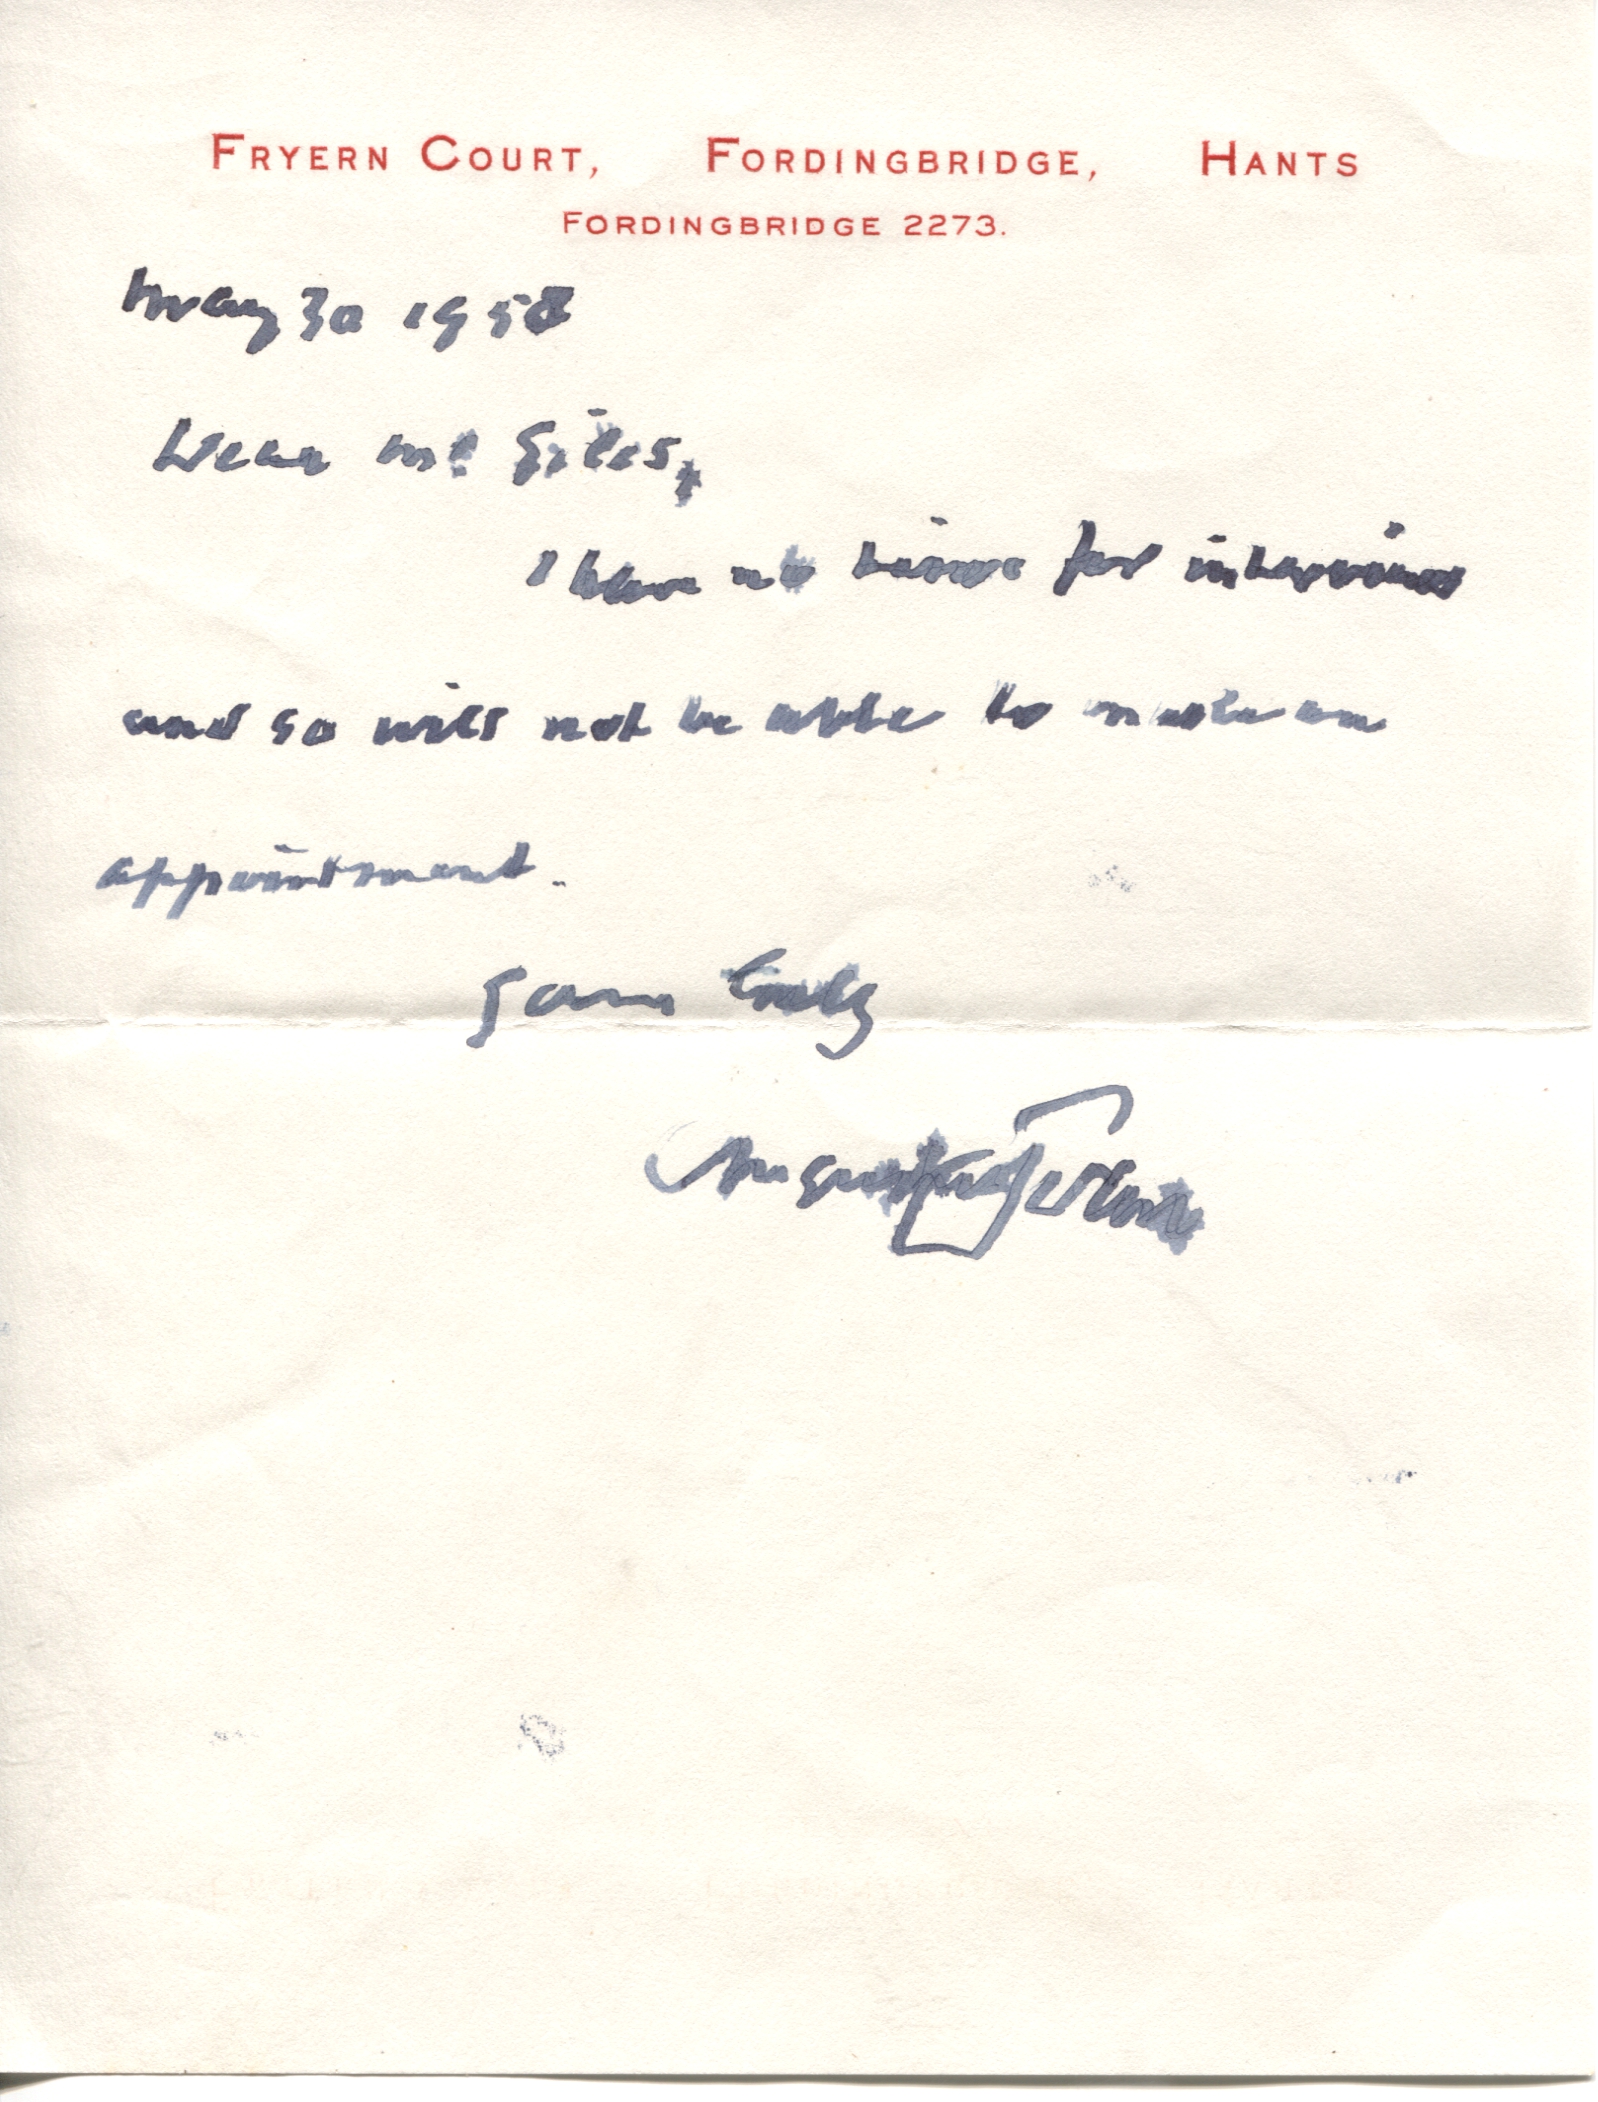 FRYERN COURT, FORDINGBRIDGE, HANTS
FORDINGBRIDGE 2273.
May 30 1958
Dear Mr Giles,
I have no time for interviews
and so will not be able to make an
appointment.
Yours truly
Augustus John